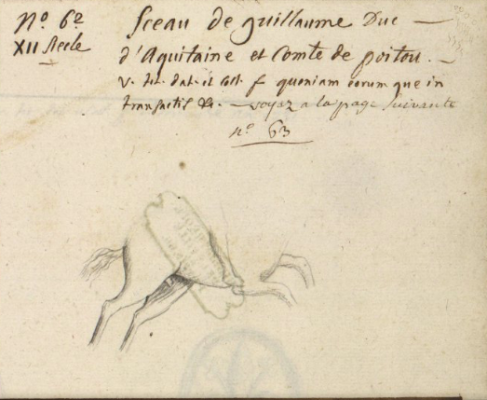 No. 62 Sceau de guillaume Duc —
XII Siecle d'Aquitaine et Comte de poitou. —
V. tit. dat. f quoniam eorum que in
transactis &c. — voyez a la page suivante
no. 63